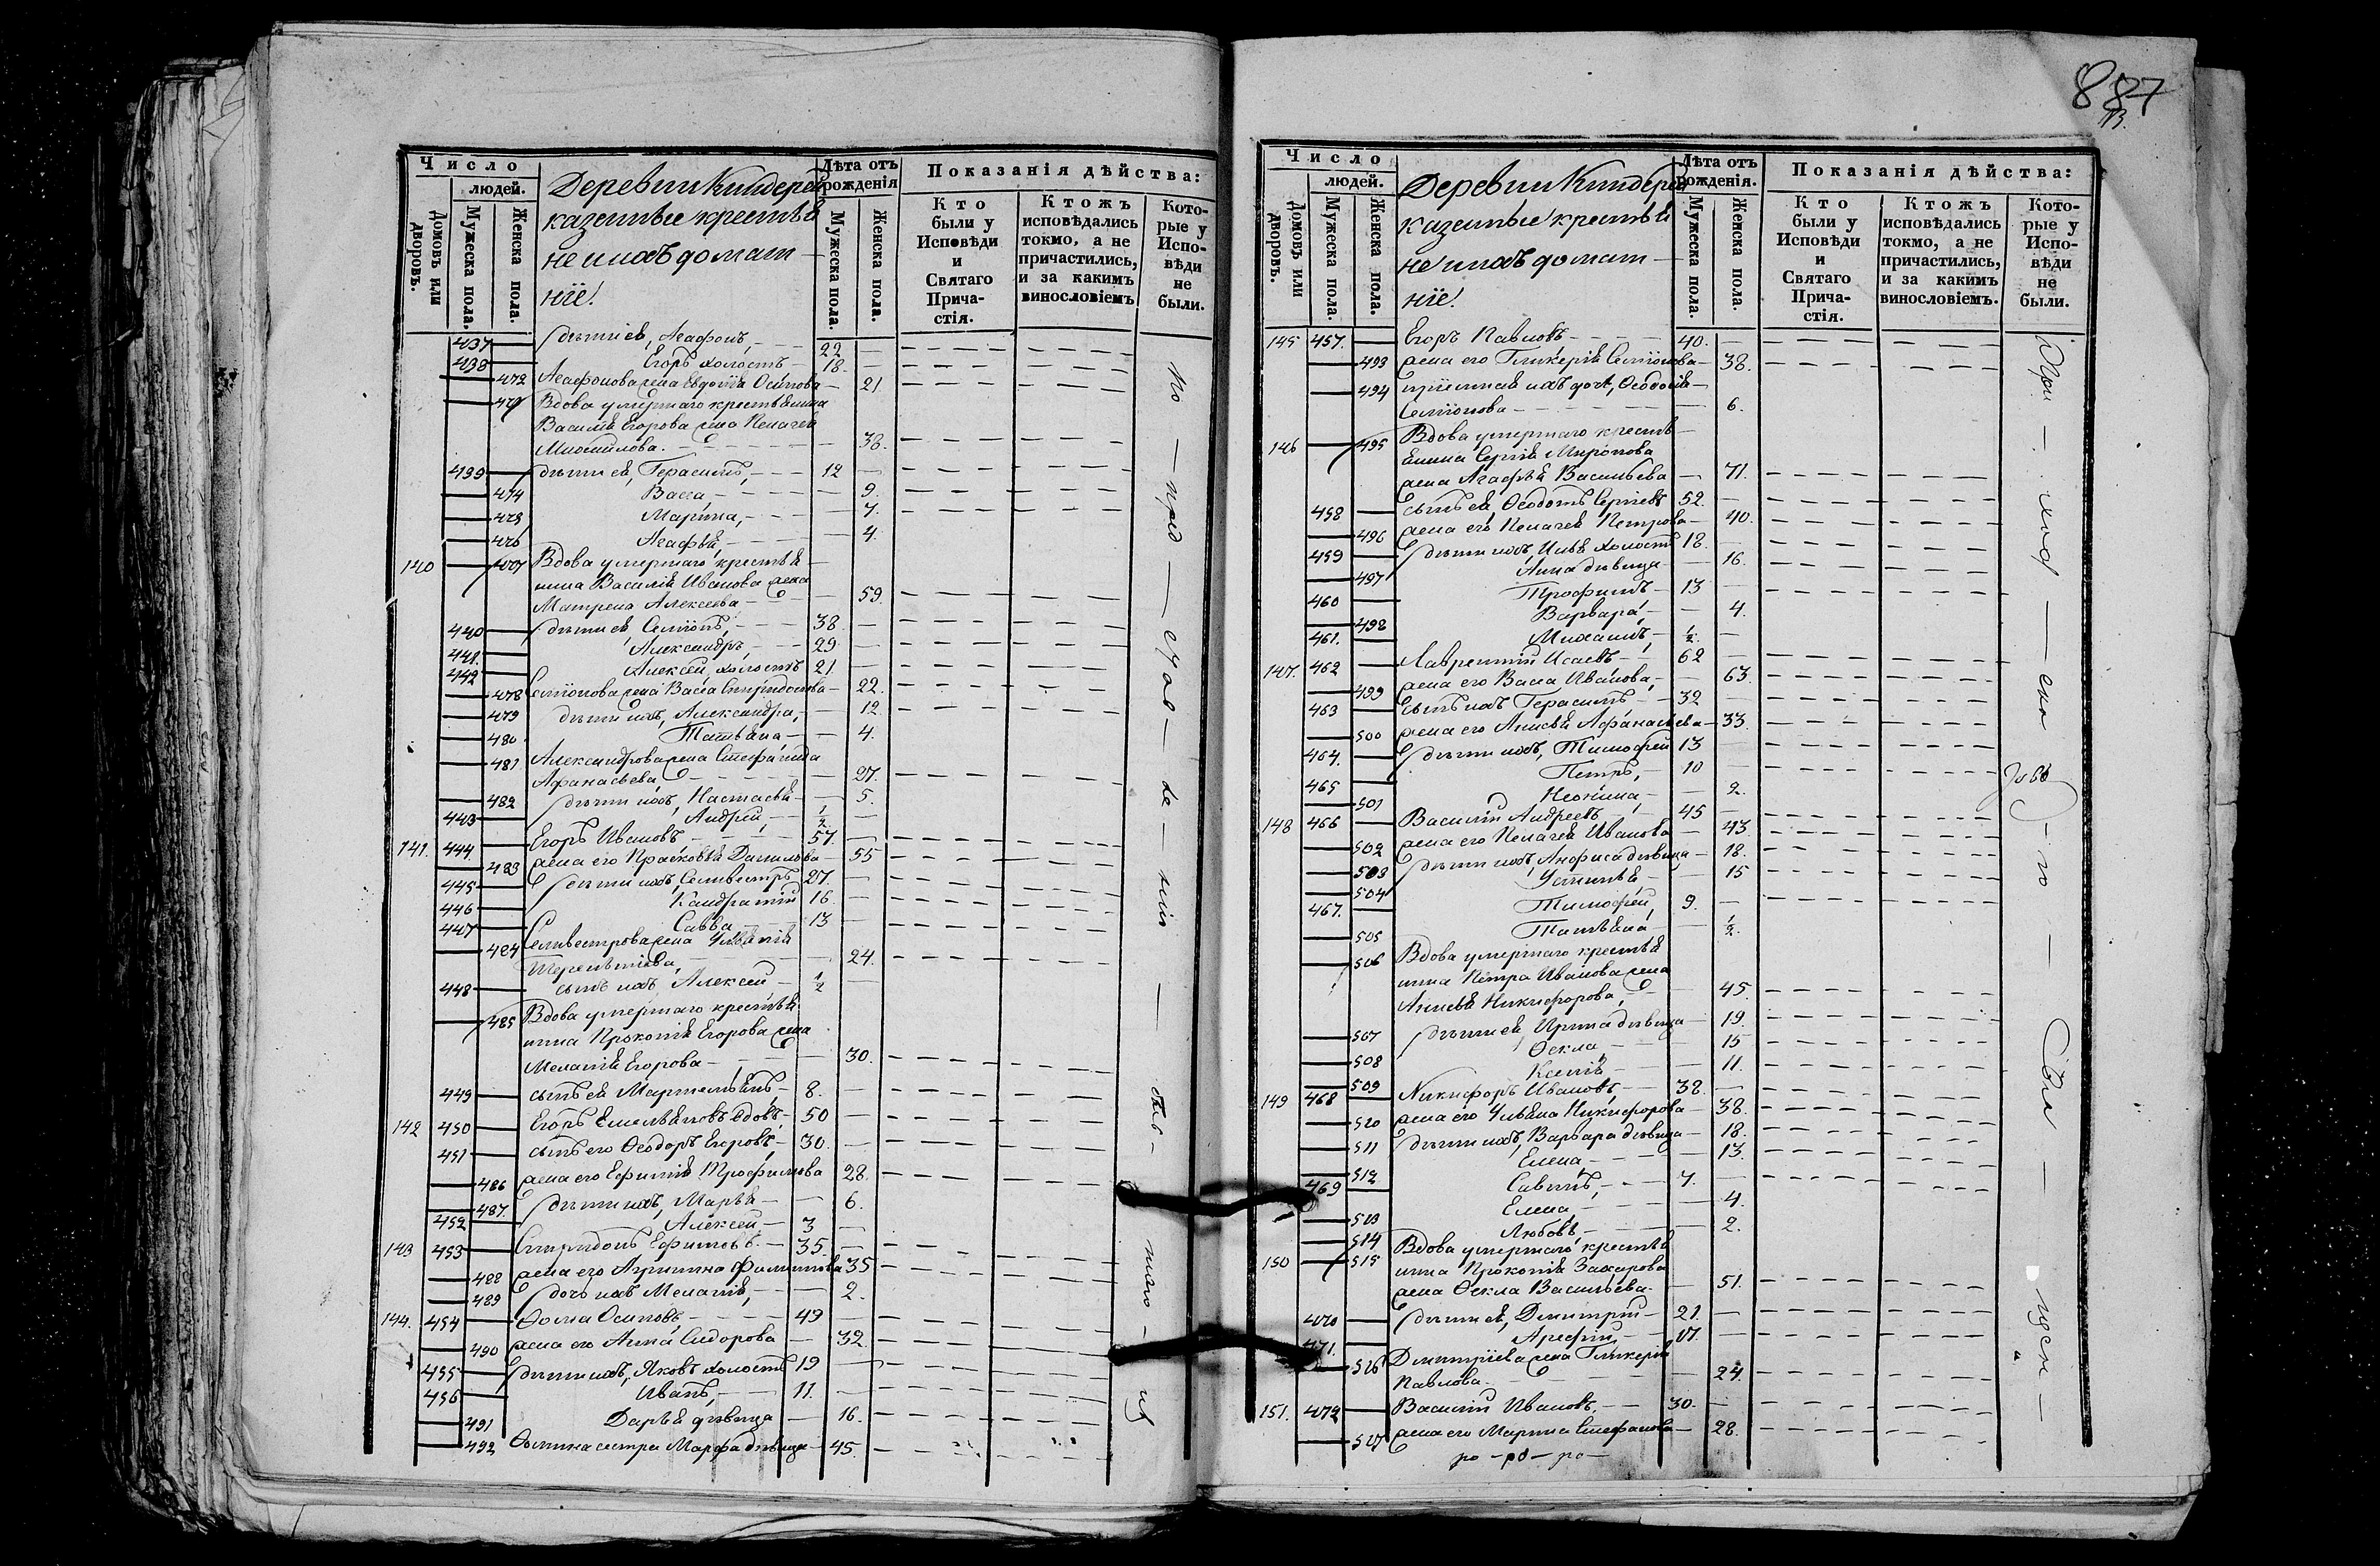 887
Число
людей.
Домовъ или дворовъ.
Мужеска пола.
Женска пола.
Деревни Киндере
казенные крестья
не и ихъ домаш-
ніе:
Лѣта отъ рожденія
Мужеска пола.
Женска пола.
Показанія дѣйства:
Кто были у Исповѣди и Святаго Причастія.
Ктожъ исповѣдались токмо, а не причастились, и за какимъ винословіемъ
Которые у Исповѣди не были.
437 дѣти ея, Агафонъ, 22
438 Егоръ холостъ 18.
472 Агафонова жена Евдокія Осипова 21
473 Вдова умершаго крестьянина
Василія Егорова жена Пелагея
Михайлова. 38.
439 дѣти ея, Герасимъ, 12
474 Васса, 9.
475 Марина, 7.
476 Агафья, 4.
140 477 Вдова умершаго крестья
нина Василія Иванова жена
Матрена Алексеева 59.
440 дѣти ея Семіонъ, 38.
441. Александръ, 29
442 Алексѣй, холостъ 21
478 Семіонова жена Васса Спиридонова 22.
479 дѣти ихъ, Александра, 12.
480 Татьяна 4.
481 Александрова жена Стефанида
Афанасьева, 27.
482 дѣти ихъ, Настасья 5.
443 Андрей, 1/2
141. 444. Егоръ Ивановъ, 57.
483 жена его Прасковья Данилова 55
445 дѣти ихъ, Селивестръ 27.
446 Кандратій 16.
447 Савва, 13
484 Селивестрова жена
Терентіева, 24.
448 сынъ ихъ Алексей 1/2
485 Вдова умершаго крестья
нина Прокопія Егорова жена
Меланія Егорова 30.
449 сынъ ея Мартемьянъ, 8.
142 450 Егоръ Емельяновъ вдовъ, 50
451 сынъ его Ѳеодоръ Егоровъ, 30.
486 жена его Ефимія Трофимова 28.
487. дѣти ихъ, Марья 6.
452 Алексей, 3
143 453 Спиридонъ Ефимовъ 35.
488 жена его Агрипина Филиппова 35
489 дочь ихъ Меланія, 2.
144. 454 Ѳома Осиповъ, 49
490 жена его Анна Сидорова 32.
455 дѣти ихъ, Яковъ холостъ 19
456 Иванъ, 11.
491 Дарья дѣвица 16.
492 Ѳомина сестра Марфа дѣвица 45.
Число
людей.
Домовъ или дворовъ.
Мужеска пола.
Женска пола.
Деревни Киндере
казенные крестья
не и ихъ домаш-
ніе:
Лѣта отъ рожденія.
Мужеска пола.
Женска пола.
Показанія дѣйства:
Кто были у Исповѣди и Святаго Причастія.
Ктожъ исповѣдались токмо, а не причастились, и за какимъ винословіемъ.
Которые у Исповѣди не были.
145 457. Егоръ Павловъ 40.
493 жена его Гликерія Семіонова 38.
494 пріемная ихъ дочь, Ѳеодосія
Семіонова 6.
146 495 Вдова умершаго кресть
янина Сергія Миронова
жена Агафья Васильева 71.
458 сынъ ея, Ѳеодотъ Сергіевъ 52.
496 жена его Пелагея Петрова 40.
459 дѣти ихъ, Илья холостъ 18.
497 Анна дѣвица 16.
460 Трофимъ 13
498 Варвара, 4.
461. Михаилъ, 1/2.
147. 462 Лаврентій Исаевъ 62
499 жена его Васса Иванова, 63.
463 сынъ ихъ Герасимъ 32
500 жена его Анисья Афанасьева 33.
464. дѣти ихъ, Тимофей 13
465 Петръ, 10
501 Неонила, 2.
148 466 Василій Андреевъ 45
502 жена его Пелагея Иванова 43.
503 дѣти ихъ, Анфиса дѣвица 18.
504 Устинья 15
467. Тимофей, 9.
505 Татьяна 1/2.
506 Вдова умершаго крестья
нина Петра Иванова жена
Анисья Никифорова, 45.
507 дѣти ея, Ирина дѣвица 19.
508 Ѳекла 15
509 Ксенія 11.
149 468 Никифоръ Ивановъ 38.
510 жена его Ульяна Никифорова 38.
511 дѣти ихъ, Варвара дѣвица 18.
512 Елена 13.
469 Савинъ, 7.
513 Елена, 4.
514 Любовь, 2.
150 515 Вдова умершаго крестья
нина Прокопія Захарова
жена Ѳекла Васильева. 51.
470 дѣти ея, Димитрій 21.
471. Арефій 17.
516 Димитріева жена Гликерія
Павлова 24.
151. 472 Василій Ивановъ, 30.
517 жена его Марина Стефанова 28.